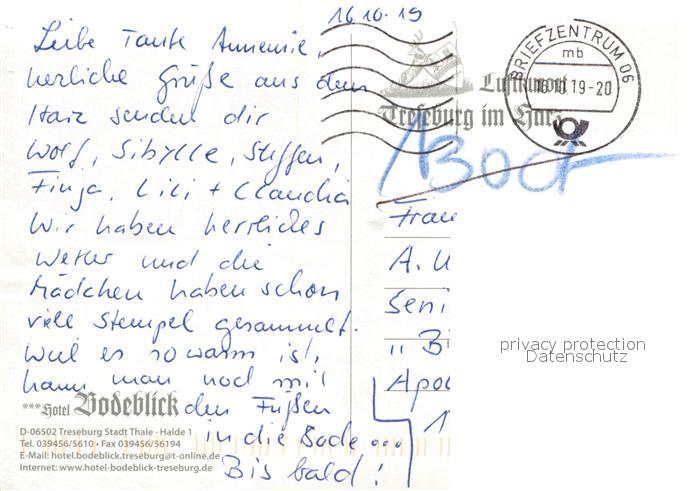 16.10.19
Liebe Tante Annemie,
herzliche Grüße aus dem
Harz senden dir
Wolf, Sibylle, Steffen,
Finja, Lili + Claudia
Wir haben herrliches
Wetter und die
Mädchen haben schon
viele Stempel gesammelt.
Weil es so warm ist,
kann man noch mit
den Füßen
in die Bode ...
Bis bald!
***Hotel Bodeblick
D-06502 Treseburg Stadt Thale · Halde 1
Tel. 039456/5610 • Fax 039456/56194
E-Mail: hotel.bodeblick.treseburg@t-online.de
Internet: www.hotel-bodeblick-treseburg.de
Luftkurort
Treseburg im Harz
BRIEFZENTRUM 06
mb
16.10.19-20
Bock
Frau
A. U
Seni
" Bi
Apo
1
privacy protection
Datenschutz